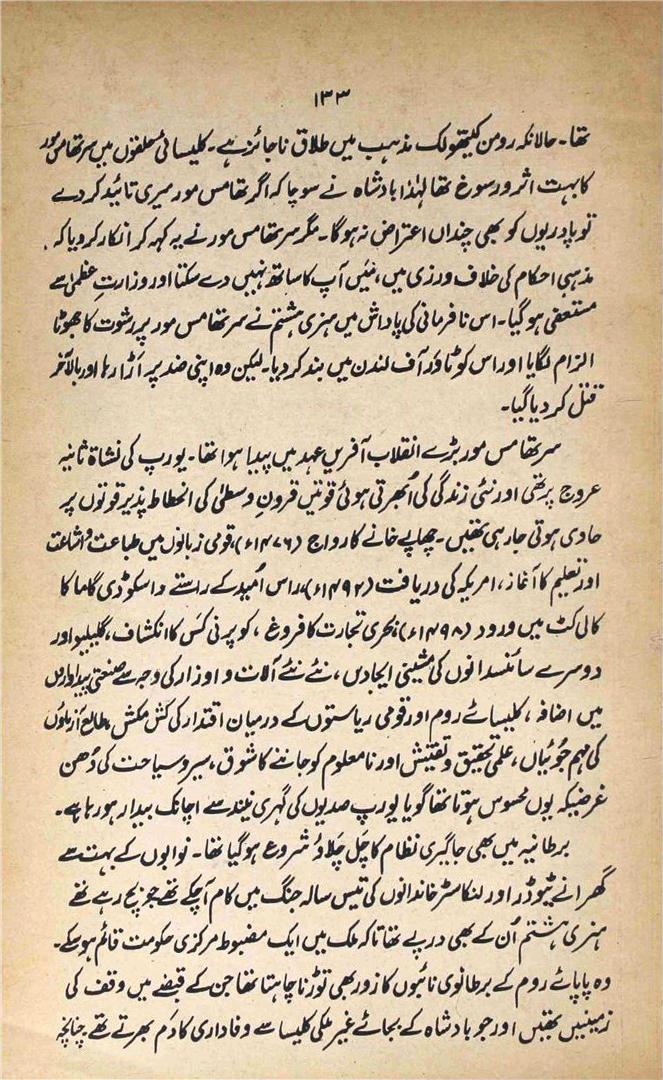 ۱۳۳
تھا۔ حالانکہ رومن کیتھولک مذہب میں طلاق ناجائز ہے۔ کلیسائی حلقوں میں سر تھامس مور
کا بہت اثر و رسوخ تھا لہٰذا بادشاہ نے سوچا کہ اگر تھامس مور میری تائید کر دے
تو پادریوں کو بھی چنداں اعتراض نہ ہوگا۔ مگر سر تھامس مور نے یہ کہہ کر انکار کر دیا کہ
مذہبی احکام کی خلاف ورزی میں، میں آپ کا ساتھ نہیں دے سکتا اور وزارتِ عظمیٰ سے
مستعفی ہو گیا۔ اس نافرمانی کی پاداش میں ہنری ہشتم نے سر تھامس مور پر رشوت کا جھوٹا
الزام لگایا اور اس کو ٹاور آف لندن میں بند کر دیا۔ لیکن وہ اپنی ضد پر اَڑا رہا اور بالآخر
قتل کر دیا گیا۔
سر تھامس مور بڑے انقلاب آفریں عہد میں پیدا ہوا تھا۔ یورپ کی نشاۃ ثانیہ
عروج پر تھی اور نئی زندگی کی اُبھرتی ہوئی قوتیں قرونِ وسطیٰ کی انحطاط پذیر قوتوں پر
حاوی ہوتی جا رہی تھیں۔ چھاپے خانے کا رواج (۱۴۷۶ء)، قومی زبانوں میں طباعت و اشاعت
اور تعلیم کا آغاز، امریکہ کی دریافت (۱۴۹۲ء)، راس اُمید کے راستے واسکوڈی گاما کا
کالی کٹ میں ورود (۱۴۹۸ء)، بحری تجارت کا فروغ، کوپرنی کَس کا انکشاف، گلیلیو اور
دوسرے سائنسدانوں کی مشینی ایجادیں، نئے نئے آلات و اوزار کی وجہ سے صنعتی پیداواروں
میں اضافہ، کلیسائے روم اور قومی ریاستوں کے درمیان اقتدار کی کش مکش، طالع آزماؤں
کی مہم جُوئیاں، علمی تحقیق و تفتیش اور نامعلوم کو جاننے کا شوق، سیر و سیاحت کی دُھن
غرضیکہ یوں محسوس ہوتا تھا گویا یورپ صدیوں کی گہری نیند سے اچانک بیدار ہو رہا ہے۔
برطانیہ میں بھی جاگیری نظام کا چل چلاؤ شروع ہو گیا تھا۔ نوابوں کے بہت سے
گھرانے ٹیوڈر اور لنکاسٹر خاندانوں کی تیس سالہ جنگ میں کام آ چکے تھے جو بچ رہے تھے
ہنری ہشتم اُن کے بھی درپے تھا تاکہ ملک میں ایک مضبوط مرکزی حکومت قائم ہو سکے۔
وہ پاپائے روم کے برطانوی نائبوں کا زور بھی توڑنا چاہتا تھا جن کے قبضے میں وقف کی
زمینیں تھیں اور جو بادشاہ کے بجائے غیر ملکی کلیسا سے وفاداری کا دَم بھرتے تھے چنانچہ